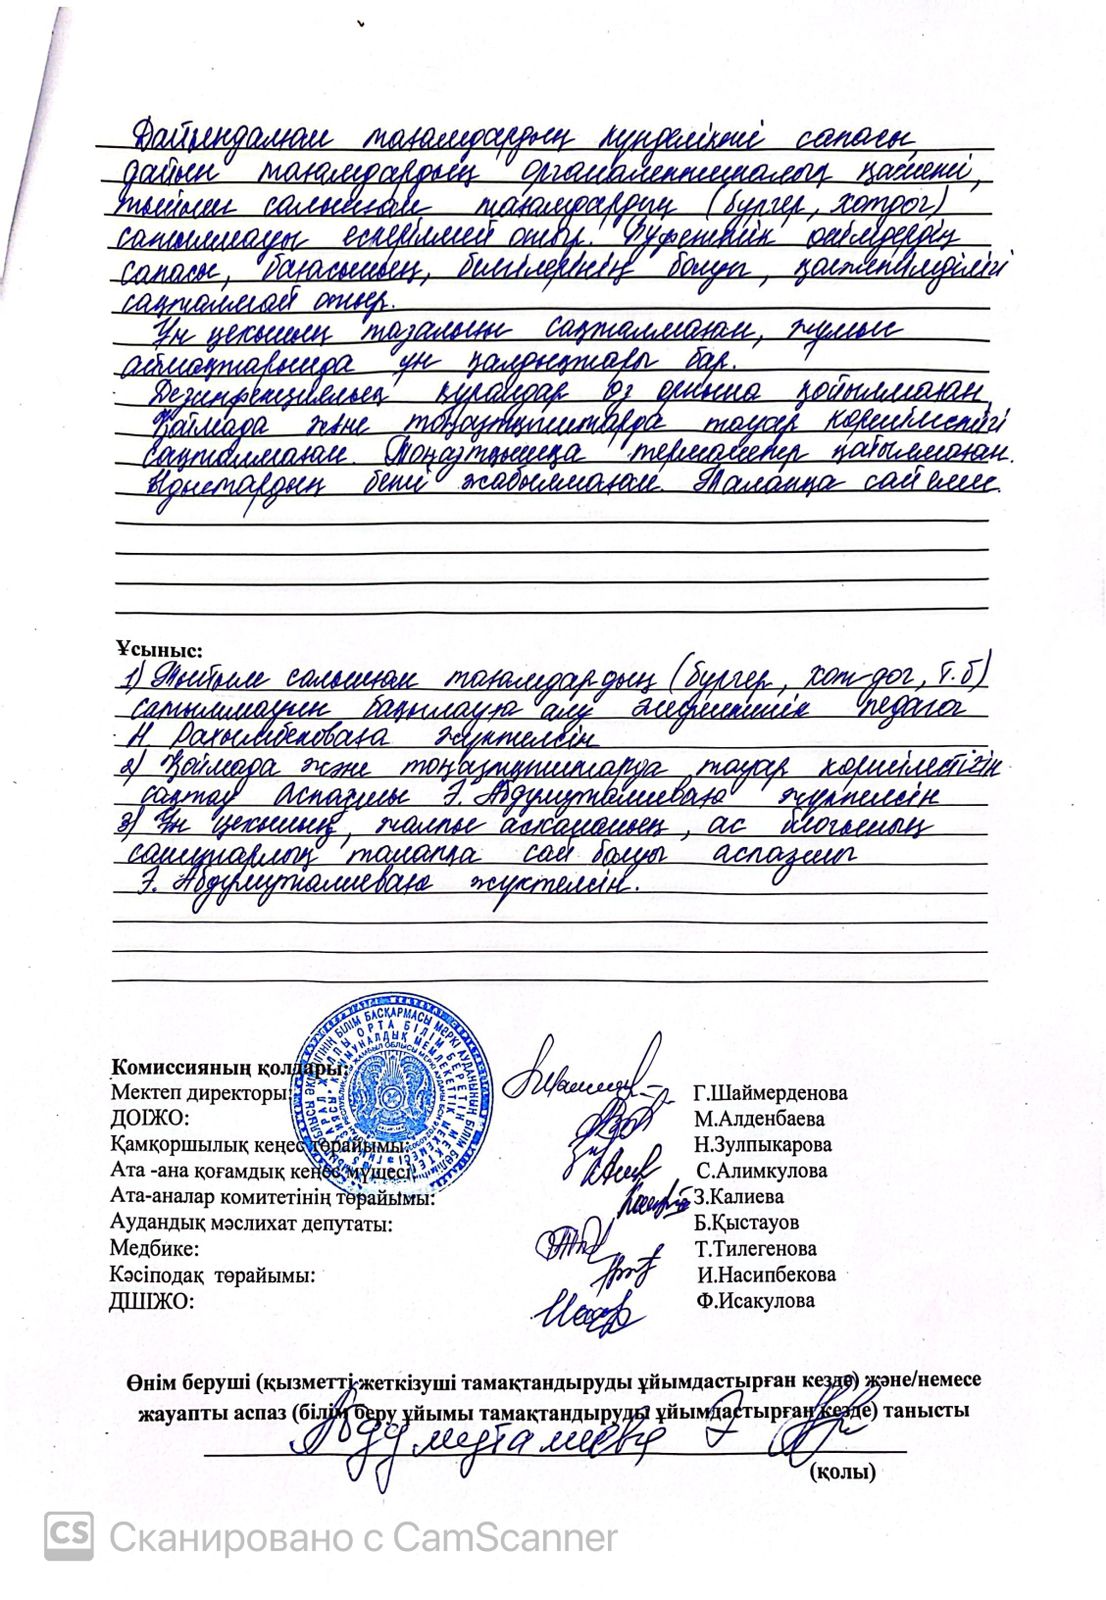 Дайындалған тағамдардың күнделікті сапасы,
дайын тағамдардың органолептикалық қасиеті,
тыйым салынған тағамдардың (бургер, хотдог)
сатылмауы ескерілмей отыр. Буфеттік өнімдердің
сапасы, бағасының, белгілерінің болуы, қолжетімділігі
сақталмай отыр.
Ұн цехының тазалығы сақталмаған, жұмыс
аймақтарында ұн қалдықтары бар.
Дезинфекциялық құралдар өз орнына қойылмаған.
Қоймада және тоңазытқыштарда тауар көршілестігі
сақталмаған. Тоңазтқышқа термометр қойылмаған.
Ыдыстардың беті жабылмаған. Талапқа сай емес.
Ұсыныс:
1) Тыйым салынған тағамдардың (бургер, хот-дог, т.б)
сатылмауын бақылауға алу әлеуметтік педагог
Н. Рахымбековаға жүктелсін
2) Қоймада және тоңазтқыштарда тауар көршілестігін
сақтау аспазшы Э. Абдумуталиеваға жүктелсін
3) Ұн цехының, жалпы асхананың, ас блогының
санитарлық талапқа сай болуы аспазшы
Э. Абдумуталиеваға жүктелсін.
Комиссияның қолдары:
Мектеп директоры: Г.Шаймерденова
ДОІЖО: М.Алденбаева
Қамқоршылық кеңес төрайымы: Н.Зулпыкарова
Ата -ана қоғамдық кеңес мүшесі: С.Алимкулова
Ата-аналар комитетінің төрайымы: З.Калиева
Аудандық мәслихат депутаты: Б.Қыстауов
Медбике: Т.Тилегенова
Кәсіподақ төрайымы: И.Насипбекова
ДШІЖО: Ф.Исакулова
Өнім беруші (қызметті жеткізуші тамақтандыруды ұйымдастырған кезде) және/немесе
жауапты аспаз (білім беру ұйымы тамақтандыруды ұйымдастырған кезде) танысты
Абдумуталиева Э
(қолы)
CS Сканировано с CamScanner